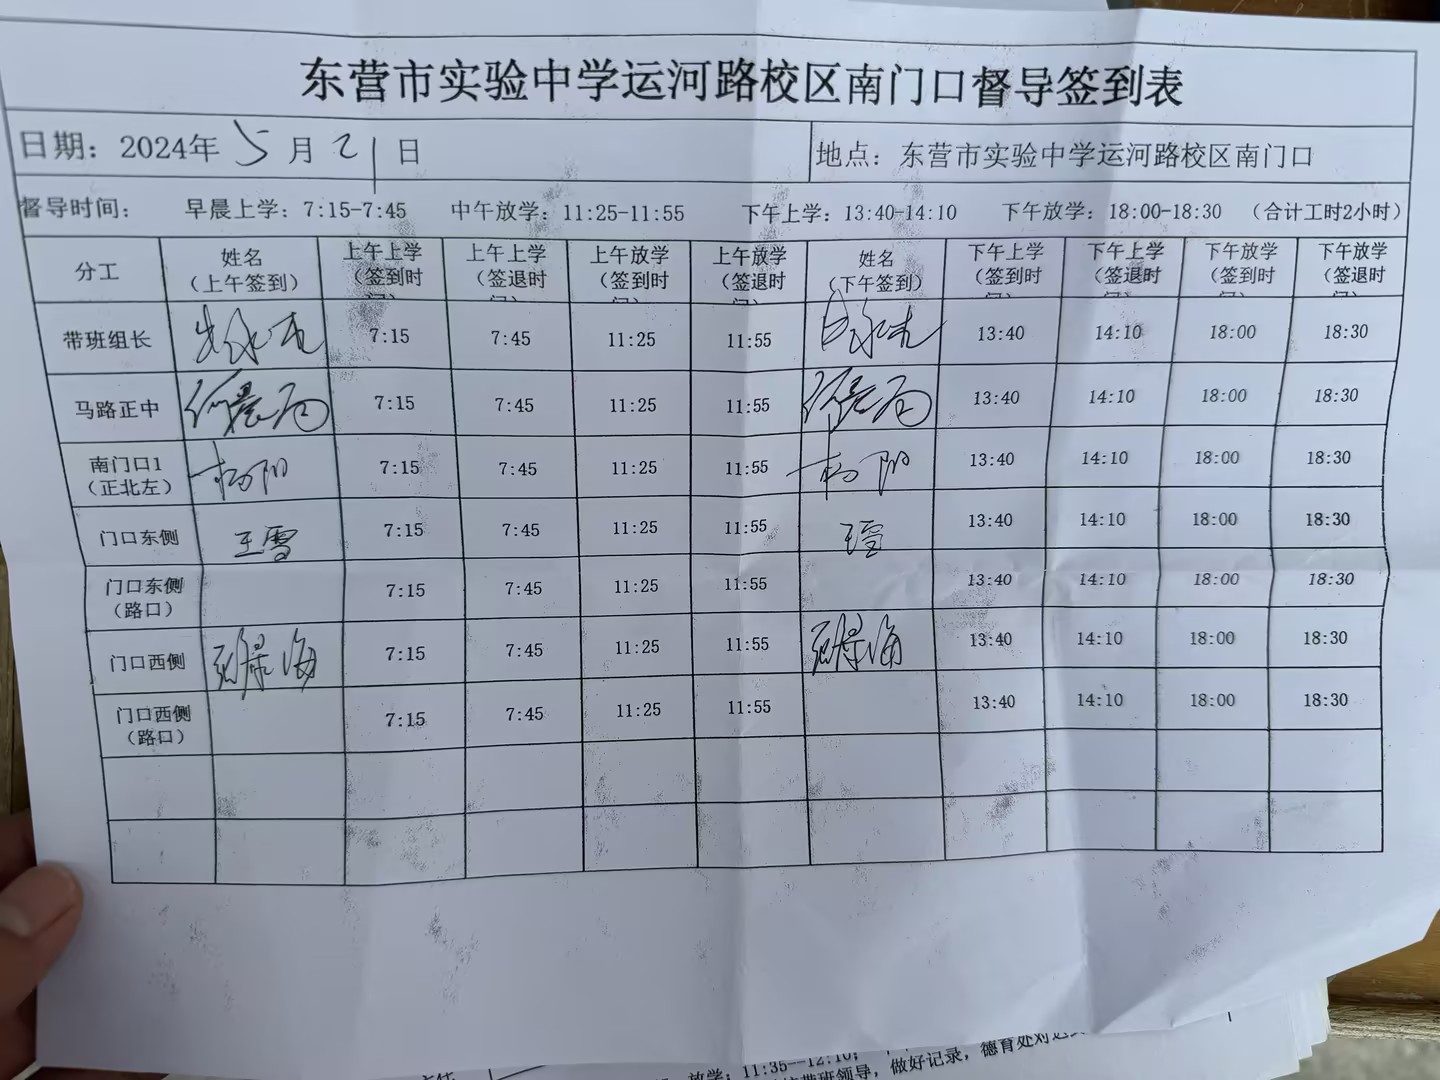 东营市实验中学运河路校区南门口督导签到表
日期：2024年5月21日 地点：东营市实验中学运河路校区南门口
督导时间： 早晨上学：7:15-7:45 中午放学：11:25-11:55 下午上学：13:40-14:10 下午放学：18:00-18:30 （合计工时2小时）
分工 姓名（上午签到） 上午上学（签到时间） 上午上学（签退时间） 上午放学（签到时间） 上午放学（签退时间） 姓名（下午签到） 下午上学（签到时间） 下午上学（签退时间） 下午放学（签到时间） 下午放学（签退时间）
带班组长 7:15 7:45 11:25 11:55 13:40 14:10 18:00 18:30
马路正中 7:15 7:45 11:25 11:55 13:40 14:10 18:00 18:30
南门口1（正北左） 杨阳 7:15 7:45 11:25 11:55 杨阳 13:40 14:10 18:00 18:30
门口东侧 王雪 7:15 7:45 11:25 11:55 王雪 13:40 14:10 18:00 18:30
门口东侧（路口） 7:15 7:45 11:25 11:55 13:40 14:10 18:00 18:30
门口西侧 7:15 7:45 11:25 11:55 13:40 14:10 18:00 18:30
门口西侧（路口） 7:15 7:45 11:25 11:55 13:40 14:10 18:00 18:30
放学：11:35--12:10；
带班领导，做好记录，德育处对